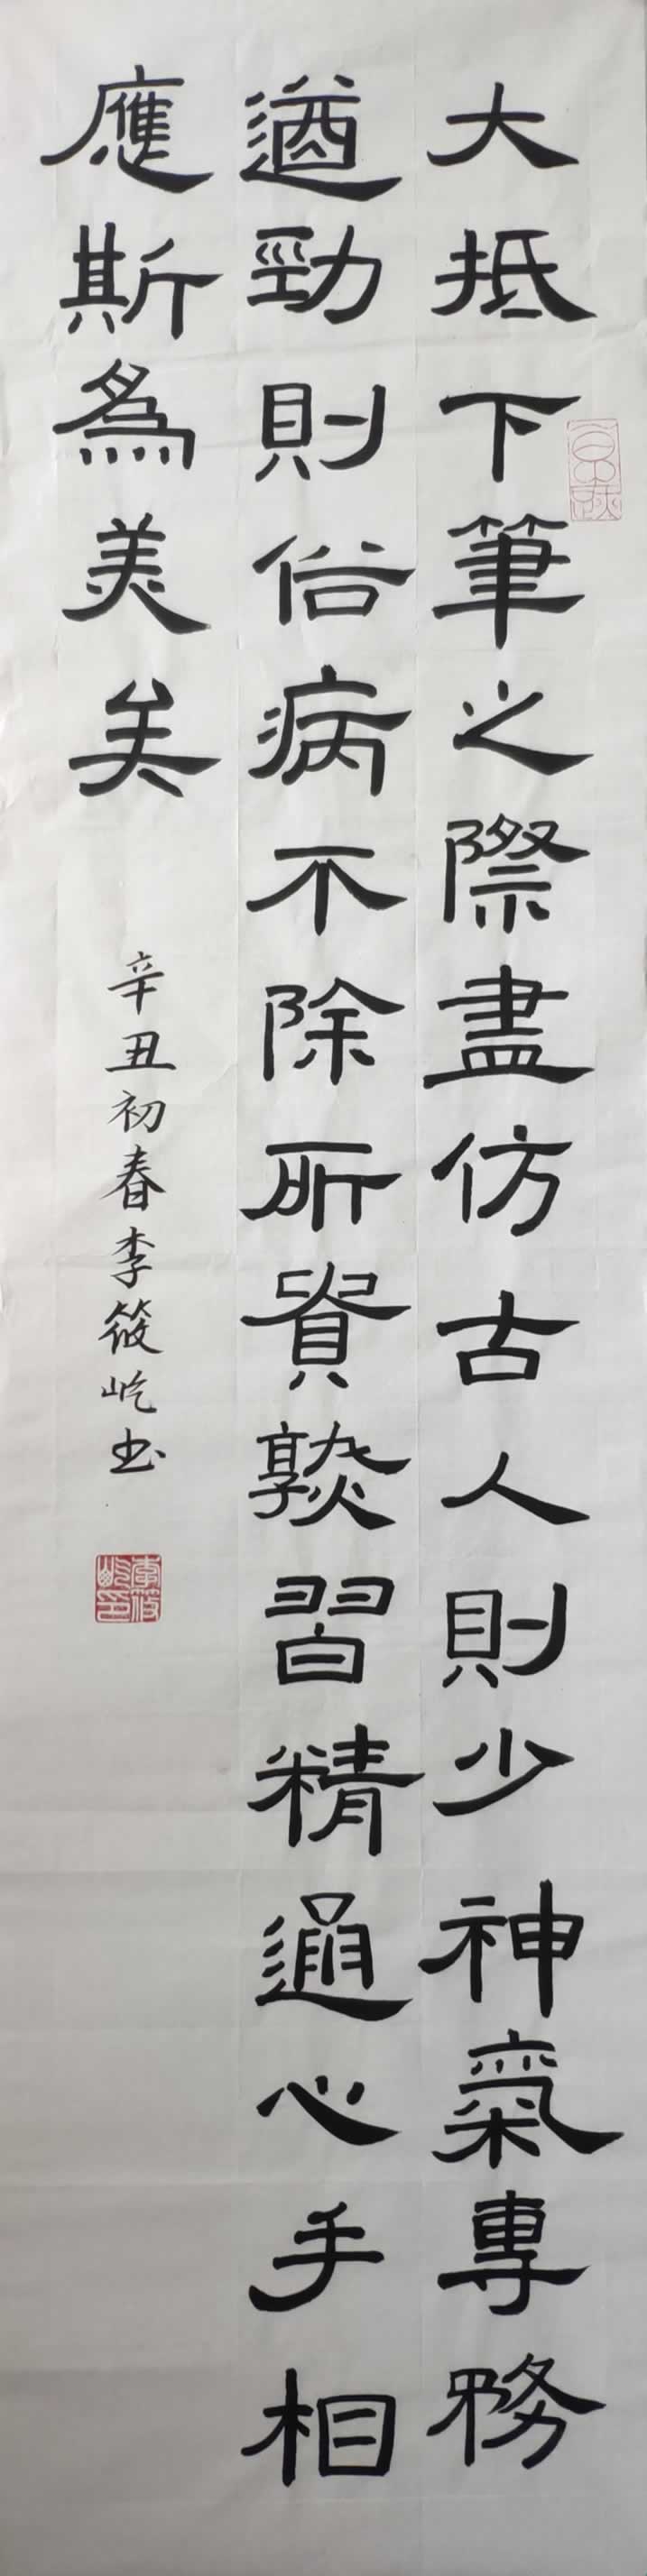 大抵下筆之際盡仿古人則少神氣專務
遒勁則俗病不除所貴熟習精通心手相
應斯為美矣
辛丑初春李筱屹书